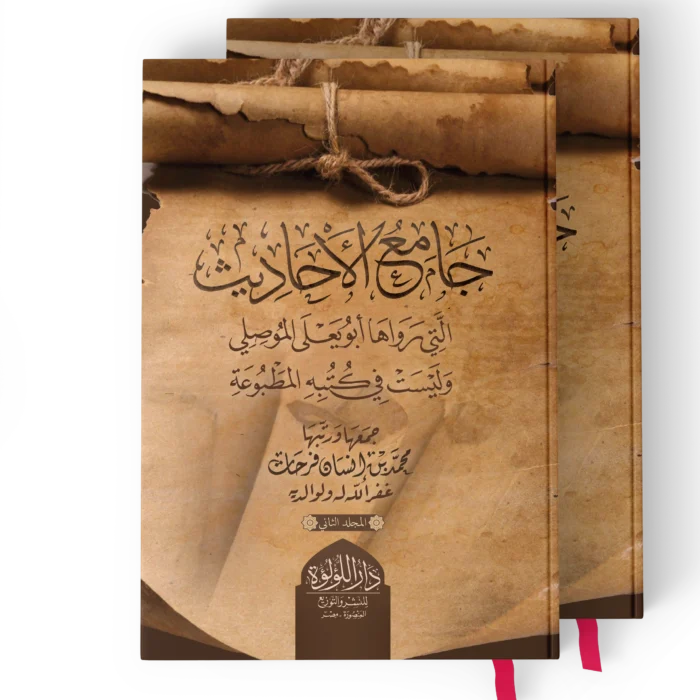 جَامِعُ الأَحَادِيث
الَّتِي رَوَاهَا أَبُو يَعْلَى المَوْصِلِي
وَلَيْسَتْ فِي كُتُبِهِ المَطْبُوعَةِ
جمعها ورتبها
محمد بن إنسان فرحات
غفر الله له ولوالديه
المجلد الثاني
دار اللؤلؤة
للنشر والتوزيع
المنصورة - مصر